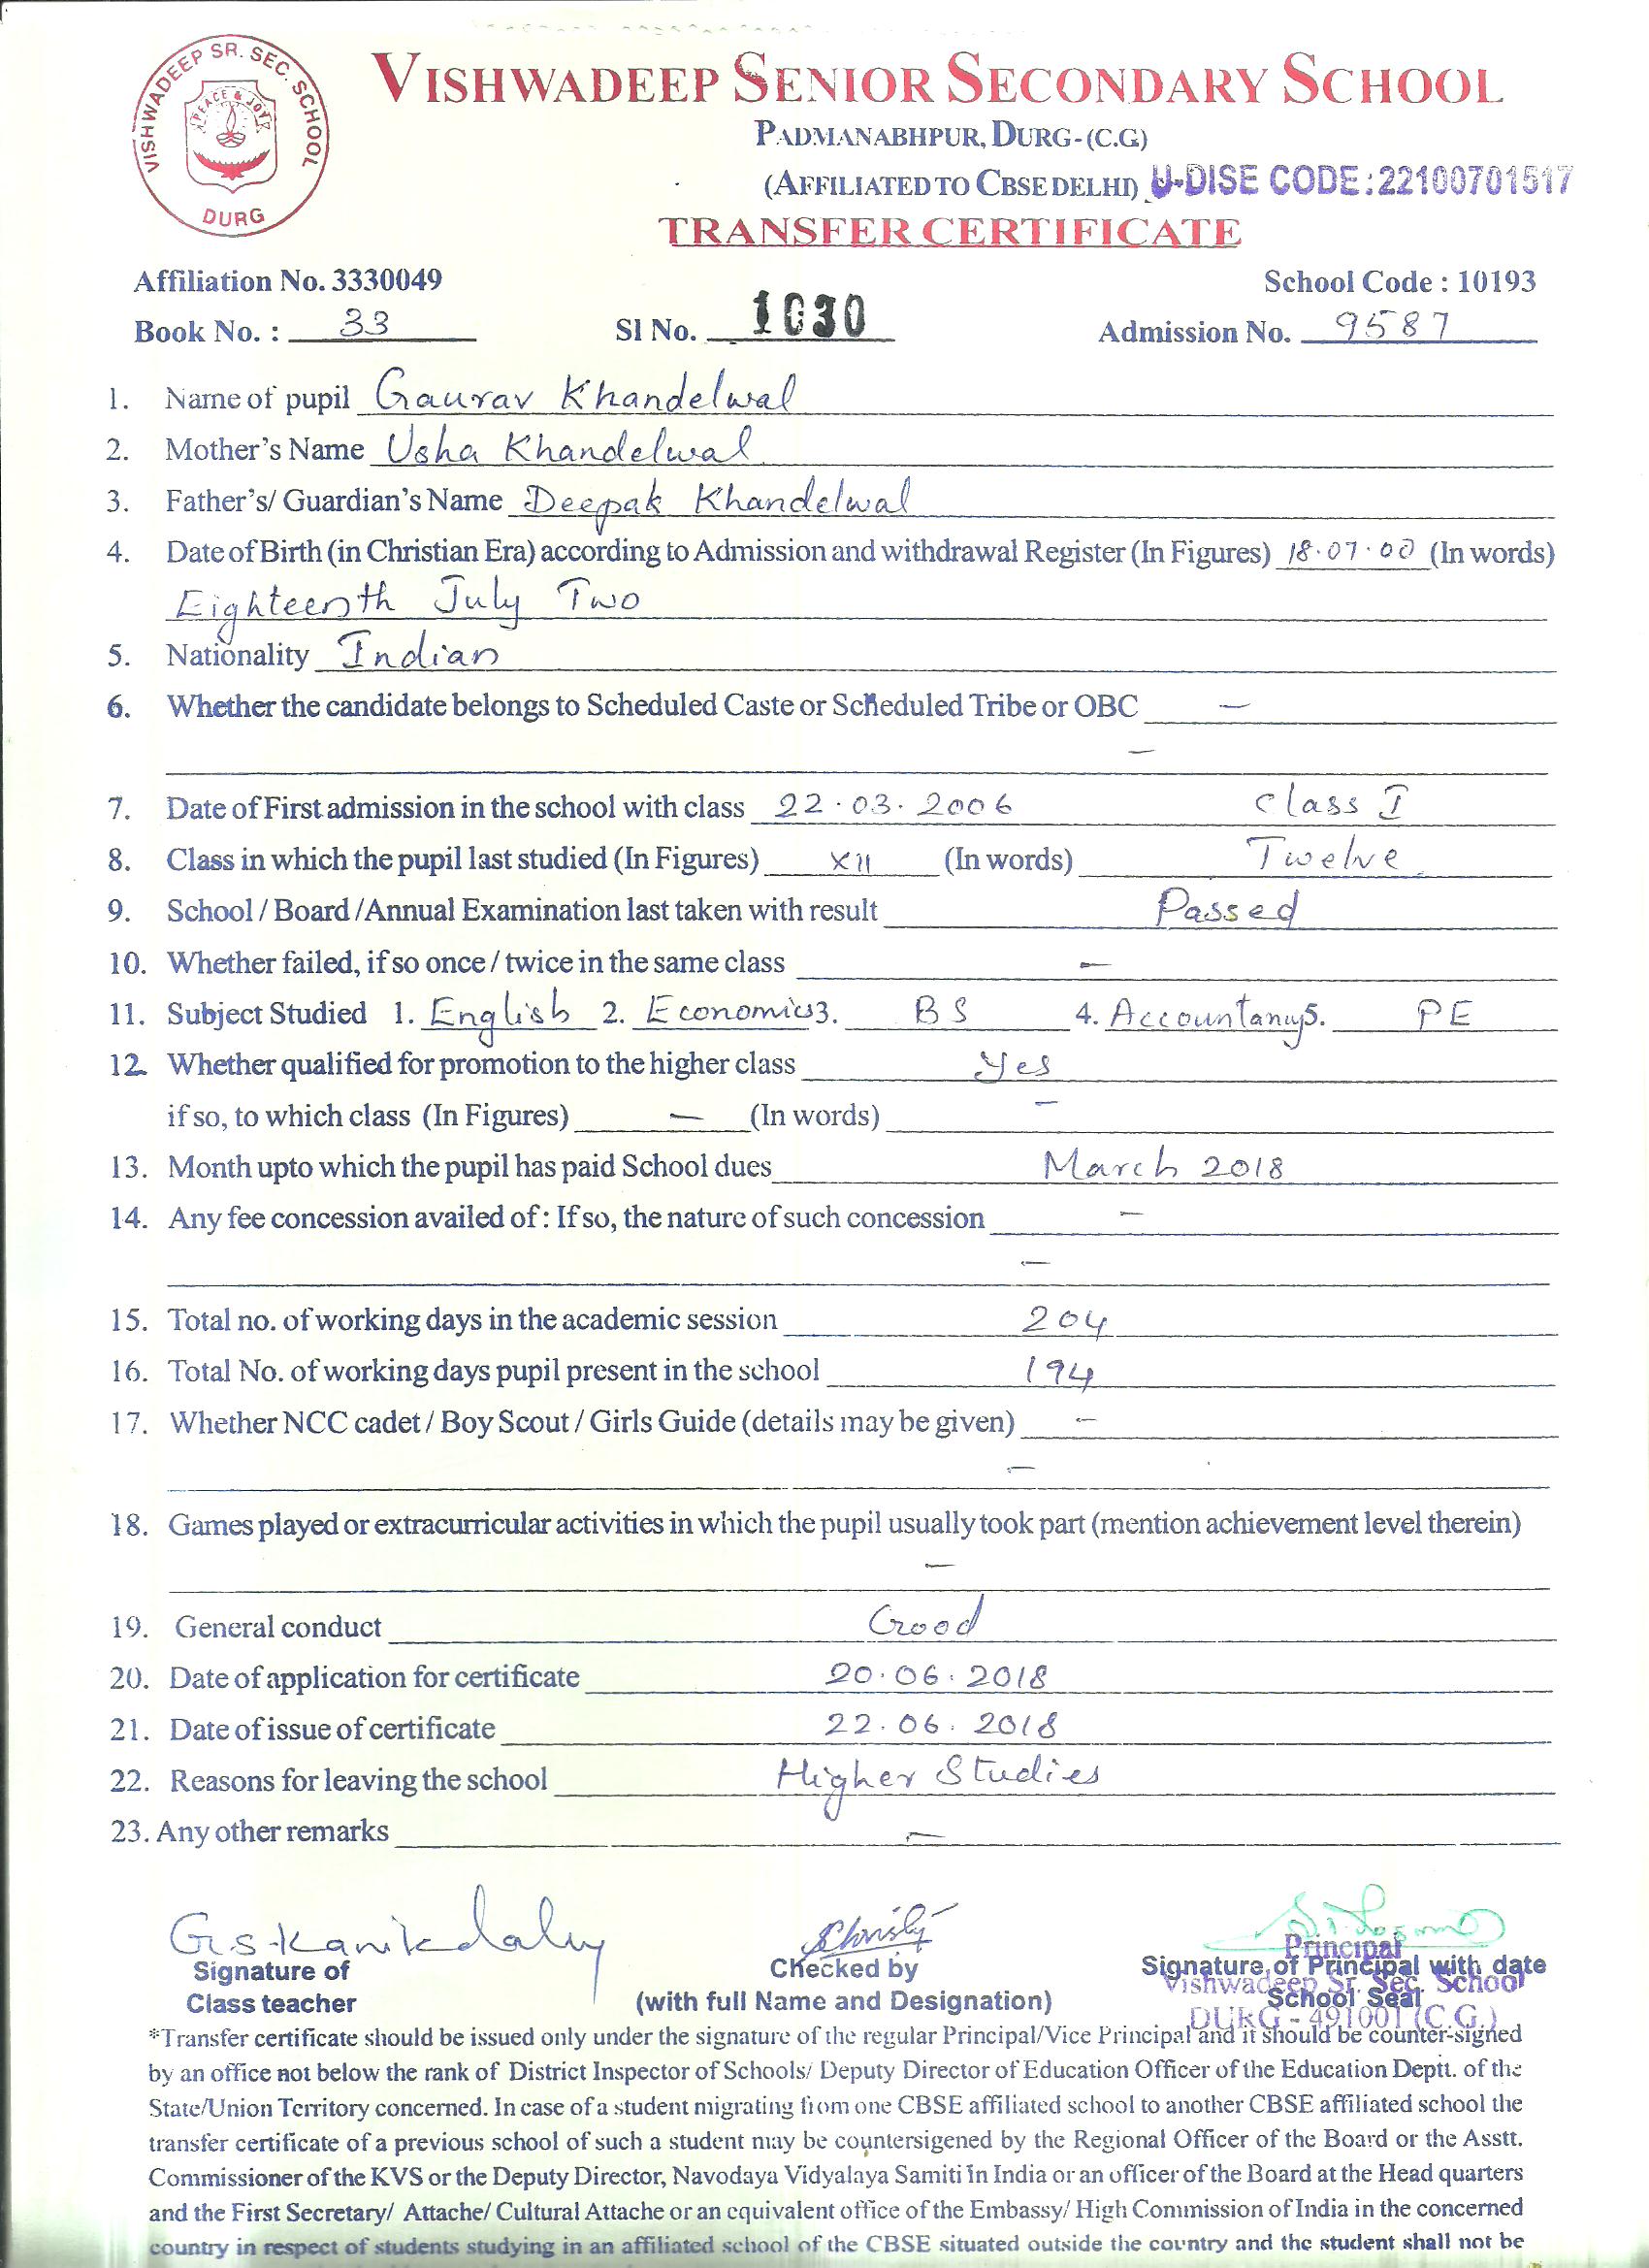 VISHWADEEP SR. SEC. SCHOOL
PEACE & JOY
DURG
VISHWADEEP SENIOR SECONDARY SCHOOL
PADMANABHPUR, DURG-(C.G)
(AFFILIATED TO CBSE DELHI) U-DISE CODE:22100701517
TRANSFER CERTIFICATE
Affiliation No. 3330049 School Code : 10193
Book No. : 33 Sl No. 1030 Admission No. 9587
1. Name of pupil Gaurav Khandelwal
2. Mother's Name Usha Khandelwal
3. Father's/ Guardian's Name Deepak Khandelwal
4. Date of Birth (in Christian Era) according to Admission and withdrawal Register (In Figures) 18.07.00 (In words)
Eighteenth July Two
5. Nationality Indian
6. Whether the candidate belongs to Scheduled Caste or Scheduled Tribe or OBC —
—
7. Date of First admission in the school with class 22.03.2006 Class I
8. Class in which the pupil last studied (In Figures) XII (In words) Twelve
9. School / Board /Annual Examination last taken with result Passed
10. Whether failed, if so once / twice in the same class —
11. Subject Studied 1. English 2. Economics 3. BS 4. Accountancy 5. PE
12. Whether qualified for promotion to the higher class Yes
if so, to which class (In Figures) — (In words) —
13. Month upto which the pupil has paid School dues March 2018
14. Any fee concession availed of : If so, the nature of such concession —
—
15. Total no. of working days in the academic session 204
16. Total No. of working days pupil present in the school 194
17. Whether NCC cadet / Boy Scout / Girls Guide (details may be given) —
—
18. Games played or extracurricular activities in which the pupil usually took part (mention achievement level therein)
—
19. General conduct Good
20. Date of application for certificate 20.06.2018
21. Date of issue of certificate 22.06.2018
22. Reasons for leaving the school Higher Studies
23. Any other remarks —
Signature of Checked by Principal
Signature of Principal with date
Class teacher (with full Name and Designation) School Seal
Vishwadeep Sr. Sec. School
DURG - 491001 (C.G.)
*Transfer certificate should be issued only under the signature of the regular Principal/Vice Principal and it should be counter-signed
by an office not below the rank of District Inspector of Schools/ Deputy Director of Education Officer of the Education Deptt. of the
State/Union Territory concerned. In case of a student migrating from one CBSE affiliated school to another CBSE affiliated school the
transfer certificate of a previous school of such a student may be countersigened by the Regional Officer of the Board or the Asstt.
Commissioner of the KVS or the Deputy Director, Navodaya Vidyalaya Samiti in India or an officer of the Board at the Head quarters
and the First Secretary/ Attache/ Cultural Attache or an equivalent office of the Embassy/ High Commission of India in the concerned
country in respect of students studying in an affiliated school of the CBSE situated outside the country and the student shall not be